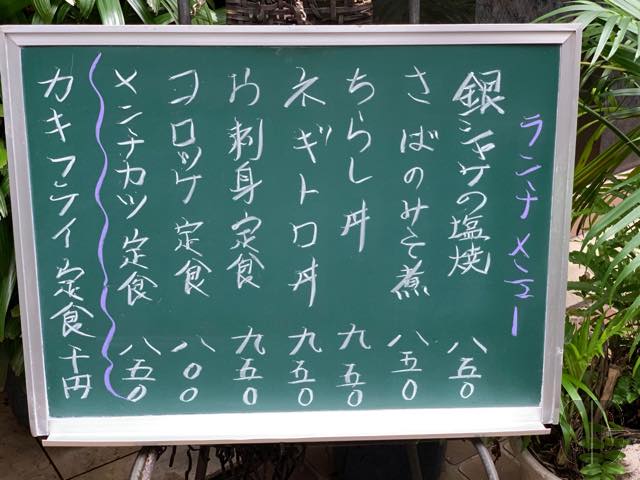 ランチメニュー
銀シャケの塩焼 八五〇
さばのみそ煮 八五〇
ちらし丼 九五〇
ネギトロ丼 九五〇
お刺身定食 九五〇
コロッケ定食 八〇〇
メンチカツ定食 八五〇
カキフライ定食 千円